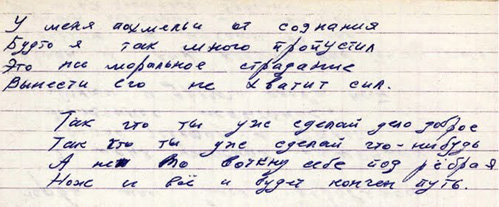 У меня похмельи от сознания
Будто я так много пропустил
Это ли моральное страдание
Вынести его не хватит сил.
Так что ты уже сделай дело доброе
Так что ты уже сделай что-нибудь
А не то воткну себе под рёбра я
Нож и всё и будет кончен путь.